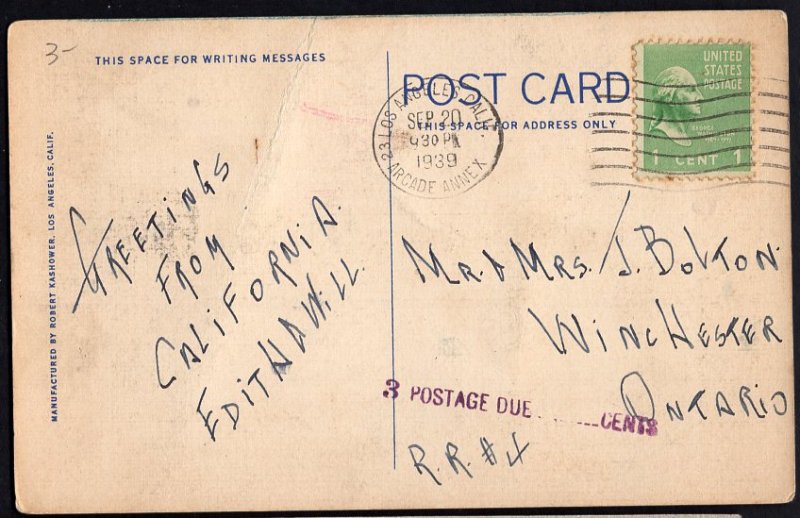 3-
THIS SPACE FOR WRITING MESSAGES
POST CARD
THIS SPACE FOR ADDRESS ONLY
LOS ANGELES, CALIF.
23
SEP 20
930 PM
1939
ARCADE ANNEX
UNITED
STATES
POSTAGE
GEORGE
1 CENT 1
MANUFACTURED BY ROBERT KASHOWER, LOS ANGELES, CALIF.
GREETINGS
FROM
CALIFORNIA.
EDITH & WILL.
MR. & MRS. J. BOLTON.
WINCHESTER
ONTARIO
3 POSTAGE DUE ------ CENTS
R.R. #4